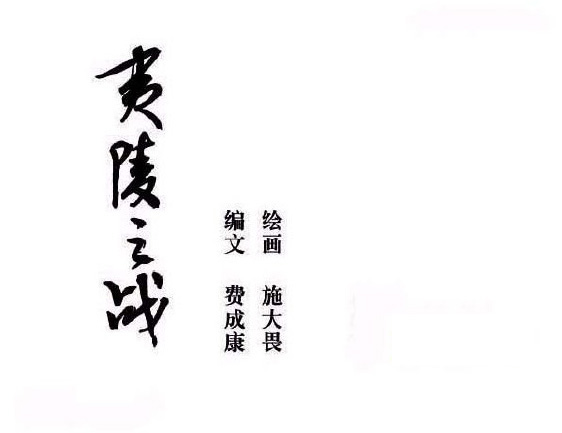 夷陵之战
绘画 施大畏
编文 费成康